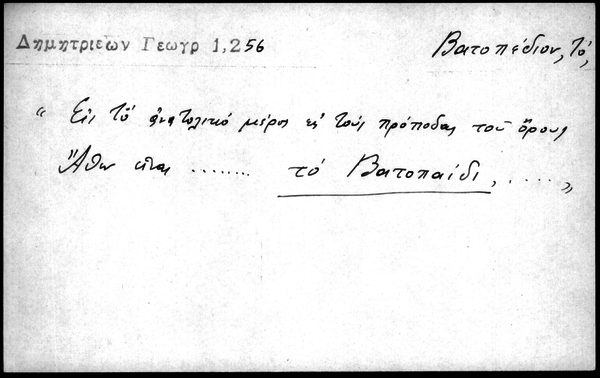 Δημητριεων Γεωγρ 1,256
Βατοπέδιον, τό,
"Εἰς τὸ ἀνατολικὸ μέρος εἰς τοὺς πρόποδας τοῦ ὄρους
Ἄθω εἶναι ........ τὸ Βατοπαίδι, ..... "